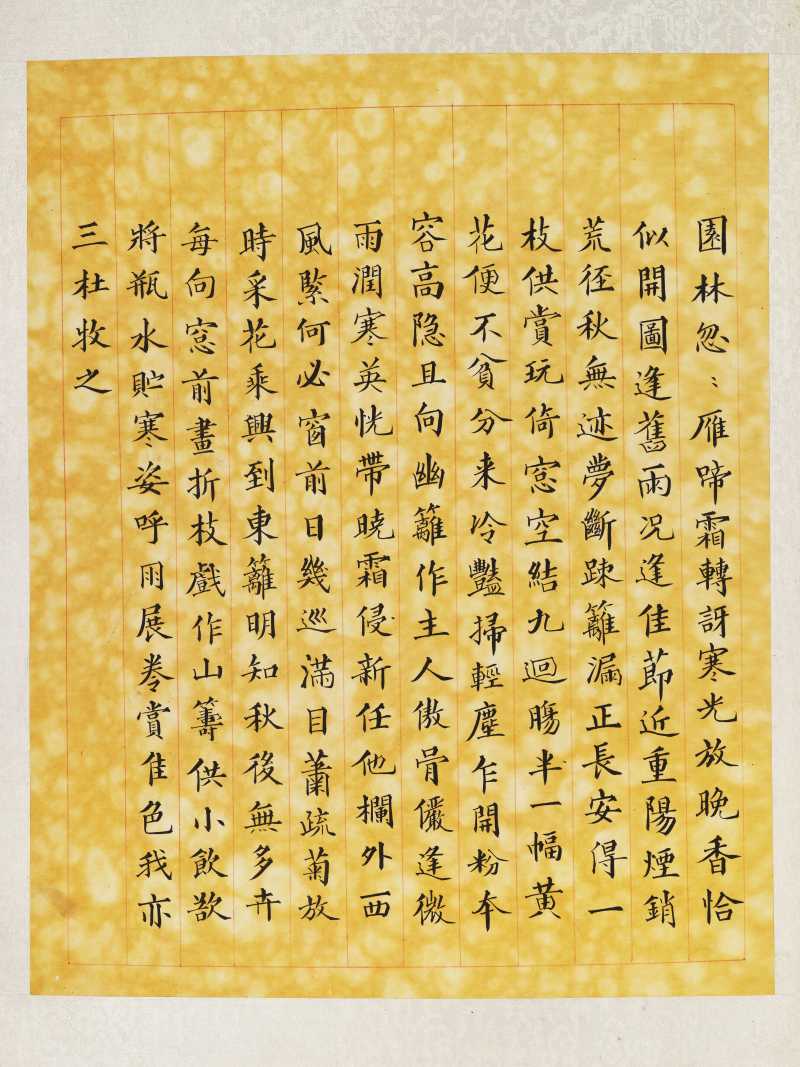 園林忽〻雁蹄霜轉訝寒光放晚香恰
似開圖逢舊雨况逢佳節近重陽煙銷
荒徑秋無迹夢斷疎籬漏正長安得一
枝供賞玩倚窓空結九迴腸半一幅黄
花便不貧分来冷豔掃輕塵乍開粉本
容高隐且向幽籬作主人傲骨儼逢微
雨潤寒英恍帶曉霜侵新任他欄外西
風緊何必窗前日幾巡滿目蕭疏菊放
時采花乘興到東籬明知秋後無多卉
每向窓前畫折枝戲作山籌供小飲欲
將瓶水貯寒姿呼朋展卷賞隹色我亦
三杜牧之